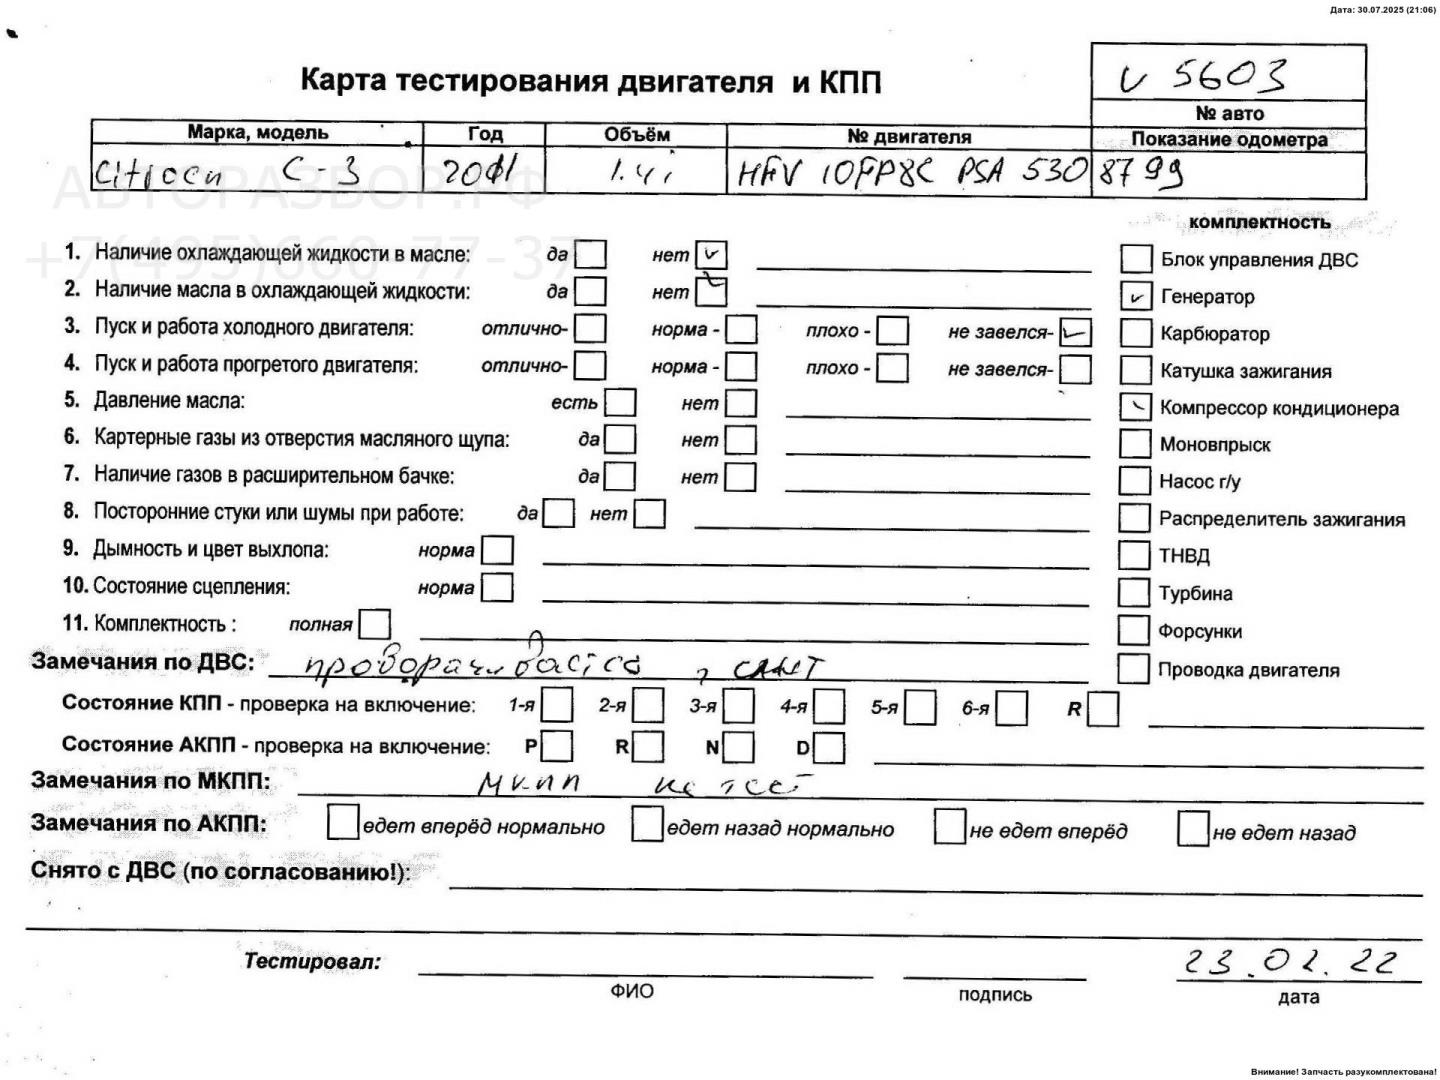 Дата: 30.07.2025 (21:06)
Карта тестирования двигателя и КПП
v 5603
№ авто
Марка, модель Год Объём № двигателя Показание одометра
Citroen C-3 2011 1.4i HFV 10FP8C PSA 5308799
АВТОРАЗБОР.РФ
+7(495)660-77-37
комплектность
1. Наличие охлаждающей жидкости в масле: да нет Блок управления ДВС
2. Наличие масла в охлаждающей жидкости: да нет Генератор
3. Пуск и работа холодного двигателя: отлично- норма - плохо - не завелся- Карбюратор
4. Пуск и работа прогретого двигателя: отлично- норма - плохо - не завелся- Катушка зажигания
5. Давление масла: есть нет Компрессор кондиционера
6. Картерные газы из отверстия масляного щупа: да нет Моновпрыск
7. Наличие газов в расширительном бачке: да нет Насос г/у
8. Посторонние стуки или шумы при работе: да нет Распределитель зажигания
9. Дымность и цвет выхлопа: норма ТНВД
10. Состояние сцепления: норма Турбина
11. Комплектность : полная Форсунки
Замечания по ДВС: проворачивается, Проводка двигателя
Состояние КПП - проверка на включение: 1-я 2-я 3-я 4-я 5-я 6-я R
Состояние АКПП - проверка на включение: P R N D
Замечания по МКПП: МКПП не тест
Замечания по АКПП: едет вперёд нормально едет назад нормально не едет вперёд не едет назад
Снято с ДВС (по согласованию!):
Тестировал:
ФИО подпись дата
Внимание! Запчасть разукомплектована!